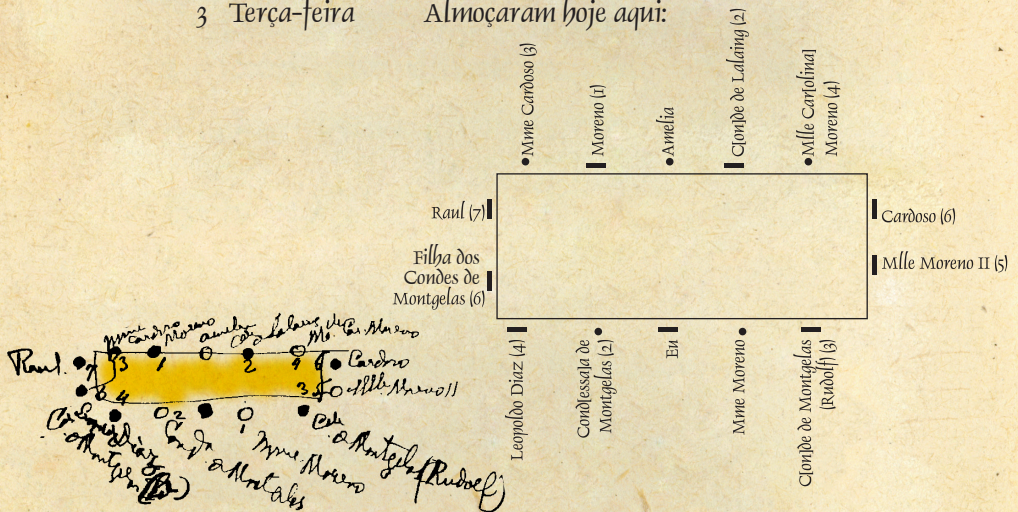 3 Terça-feira Almoçaram hoje aqui:
Mme Cardoso (3)
Moreno (1)
Amelia
C[on]de de Lalaing (2)
Mlle Car[olina]
Moreno (4)
Raul (7)
Filha dos
Condes de
Montgelas (6)
Cardoso (6)
Mlle Moreno II (5)
Leopoldo Diaz (4)
Cond[essa]a de
Montgelas (2)
Eu
Mme Moreno
C[on]de de Montgelas
(Rudolf) (3)
Mme Cardoso
Moreno
Amelia
Lalaing
Car. Moreno
Raul
7
3
1
2
4
6
Cardoso
6
4
3
5
Mlle Moreno II
2
1
Mme Moreno
Montgelas (Rudolf)